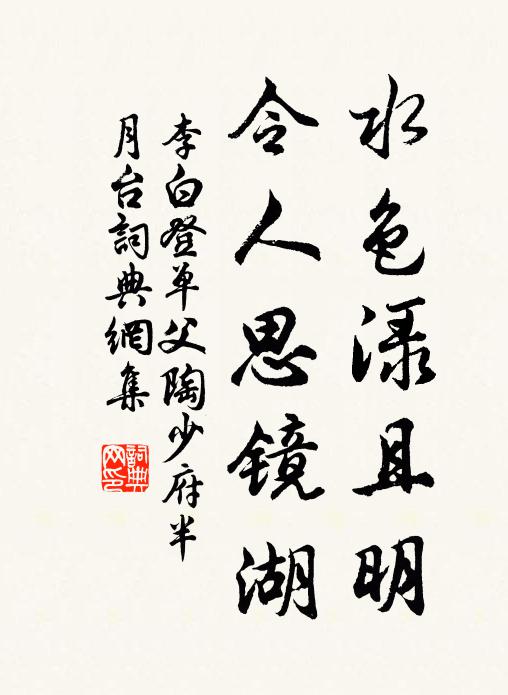 水色渌且明
令人思镜湖
李白登单父陶少府半
月台詞典網集
詞典
网印